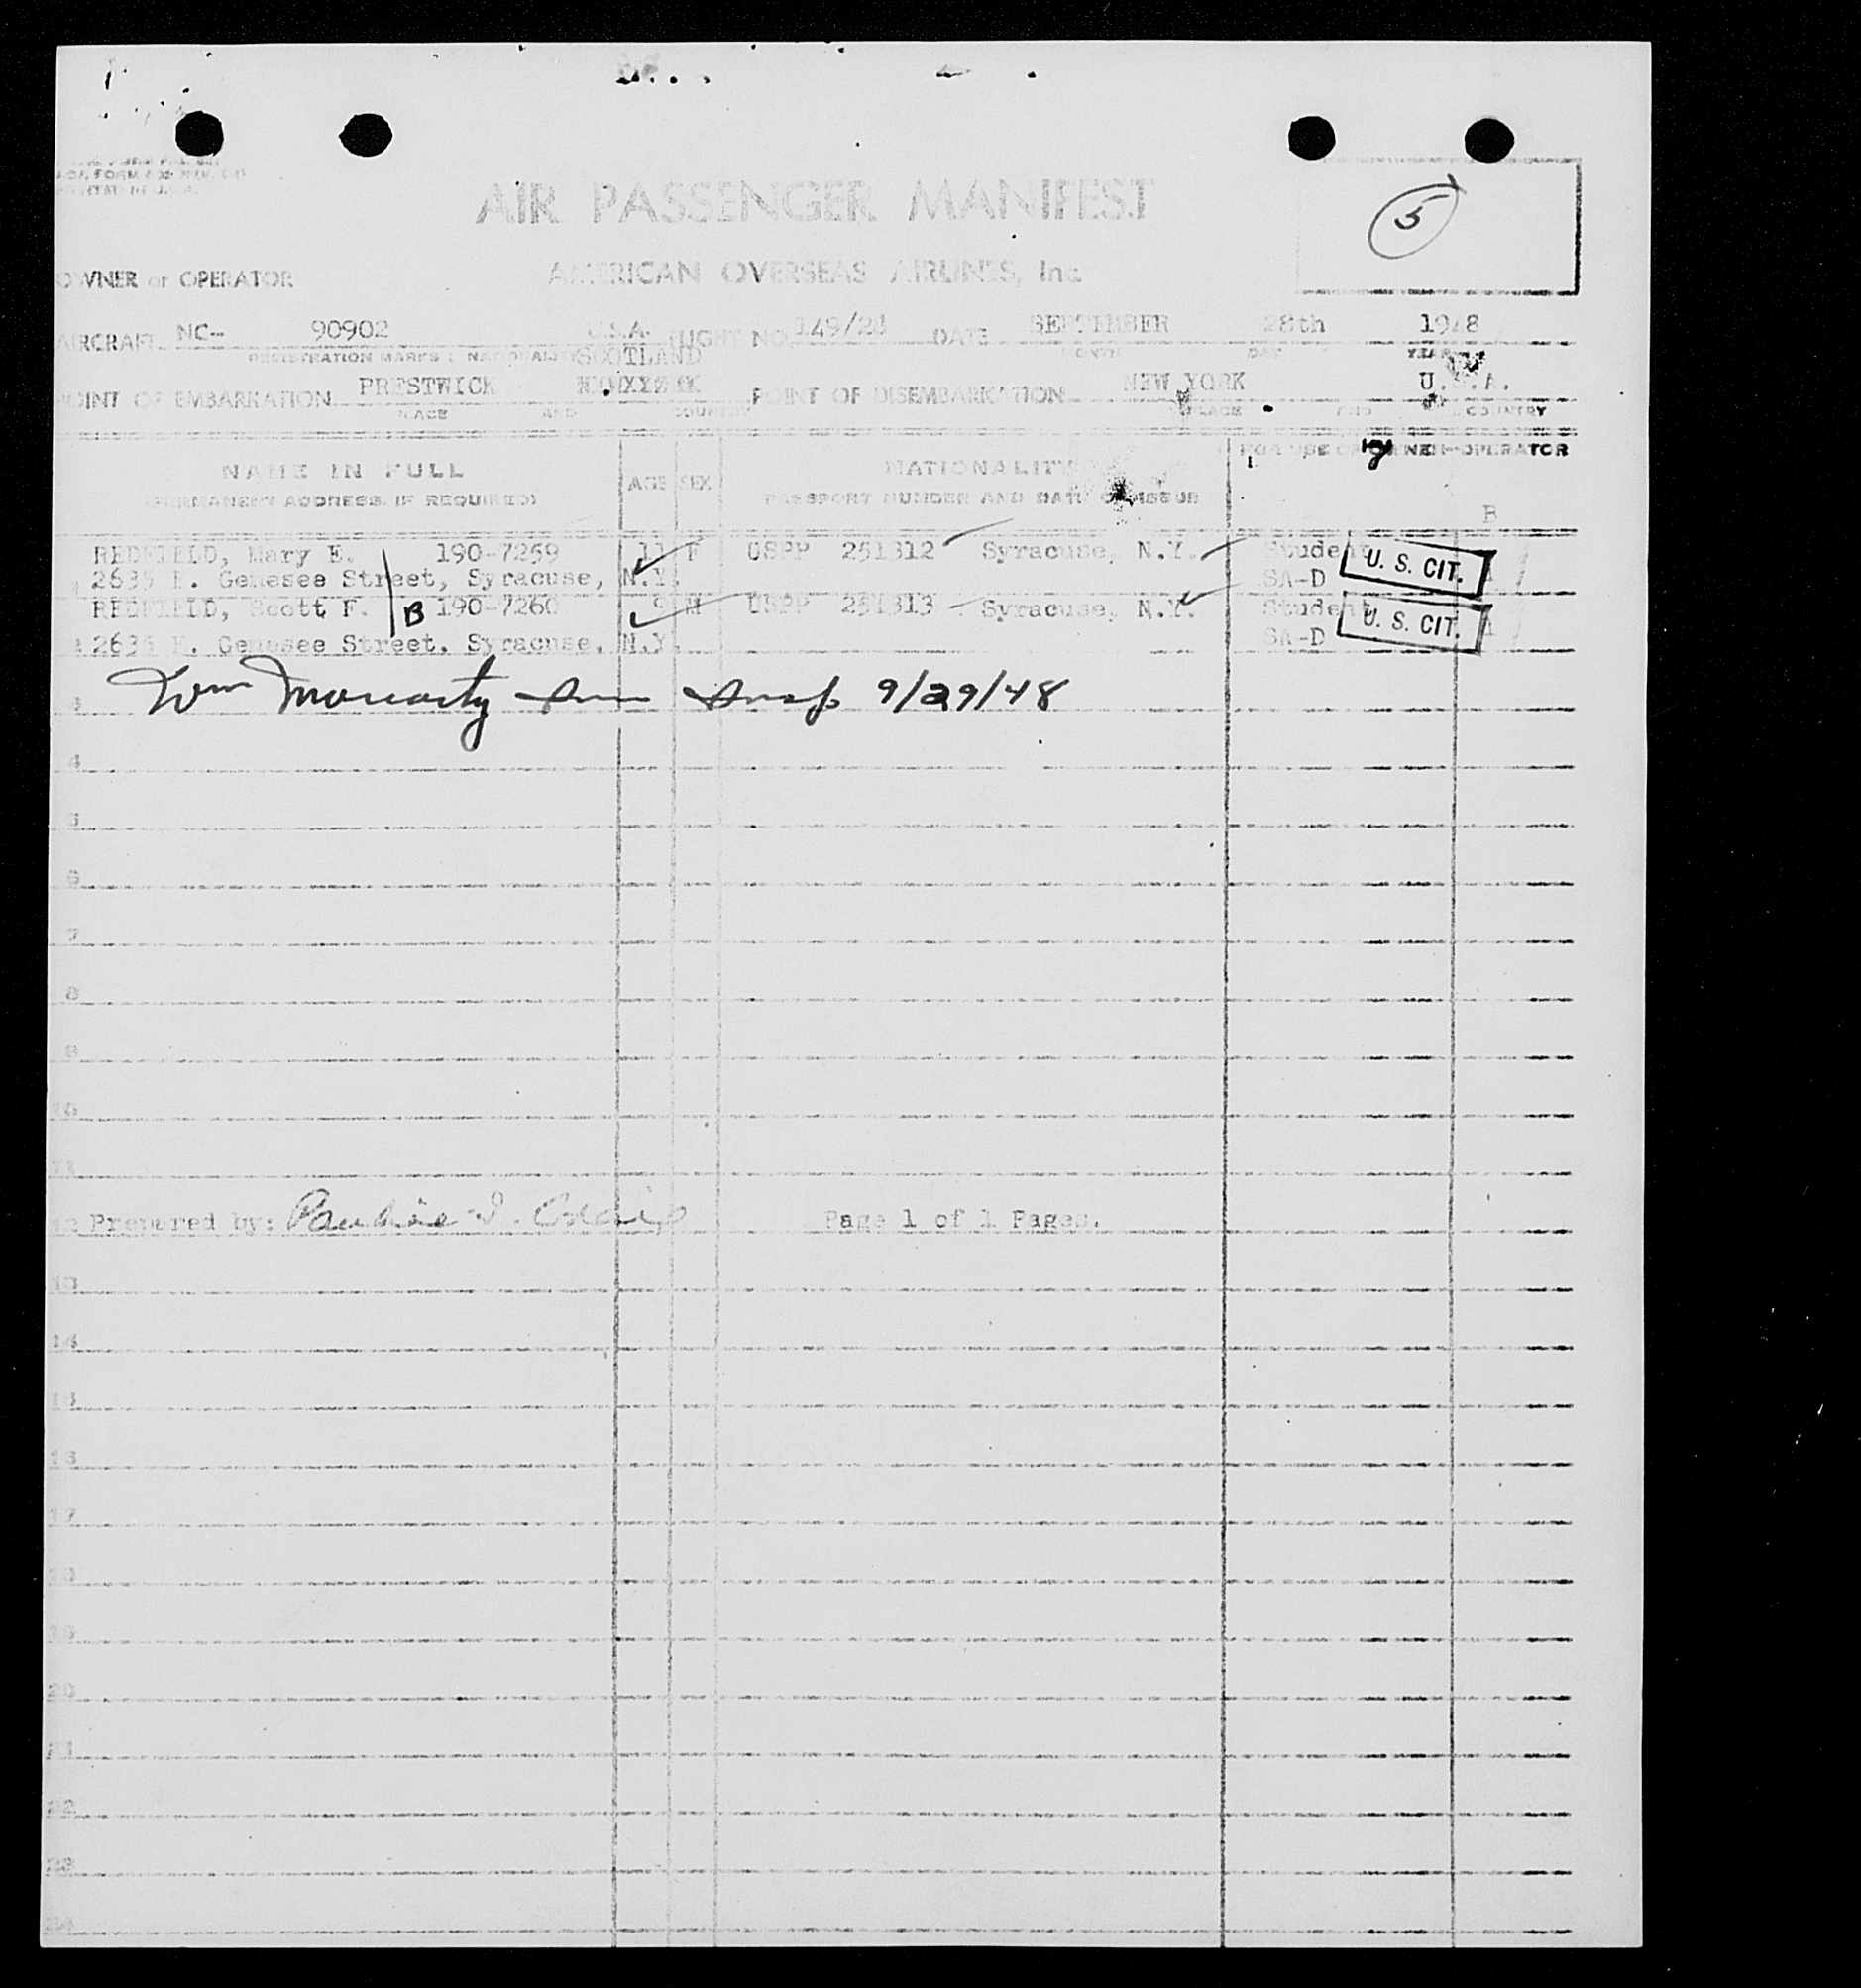 5
AIR PASSENGER MANIFEST
OWNER or OPERATOR AMERICAN OVERSEAS AIRLINES, Inc.
AIRCRAFT NC- 90902 U.S.A. FLIGHT NO. 149/28 DATE SEPTEMBER 28th 1948
REGISTRATION MARKS & NATIONALITY MONTH DAY YEAR
SCOTLAND
POINT OF EMBARKATION PRESTWICK POINT OF DISEMBARKATION NEW YORK U.S.A.
PLACE AND COUNTRY PLACE AND COUNTRY
NAME IN FULL AGE SEX NATIONALITY FOR USE OF OWNER-OPERATOR
(PERMANENT ADDRESS, IF REQUIRED) PASSPORT NUMBER AND DATE OF ISSUE
B
REDFIELD, Mary E. 190-7259 11 F USPP 251312 Syracuse, N.Y. Student U. S. CIT.
2635 E. Genesee Street, Syracuse, N.Y. SA-D
REDFIELD, Scott F. B 190-7260 9 M USPP 251313 Syracuse, N.Y. Student U. S. CIT.
2635 E. Genesee Street, Syracuse, N.Y. SA-D
3 Wm Moriarty Imm Insp 9/29/48
4
5
6
7
8
9
10
11
12 Prepared by: Pauline Page 1 of 1 Pages.
13
14
15
16
17
18
19
20
21
22
23
24